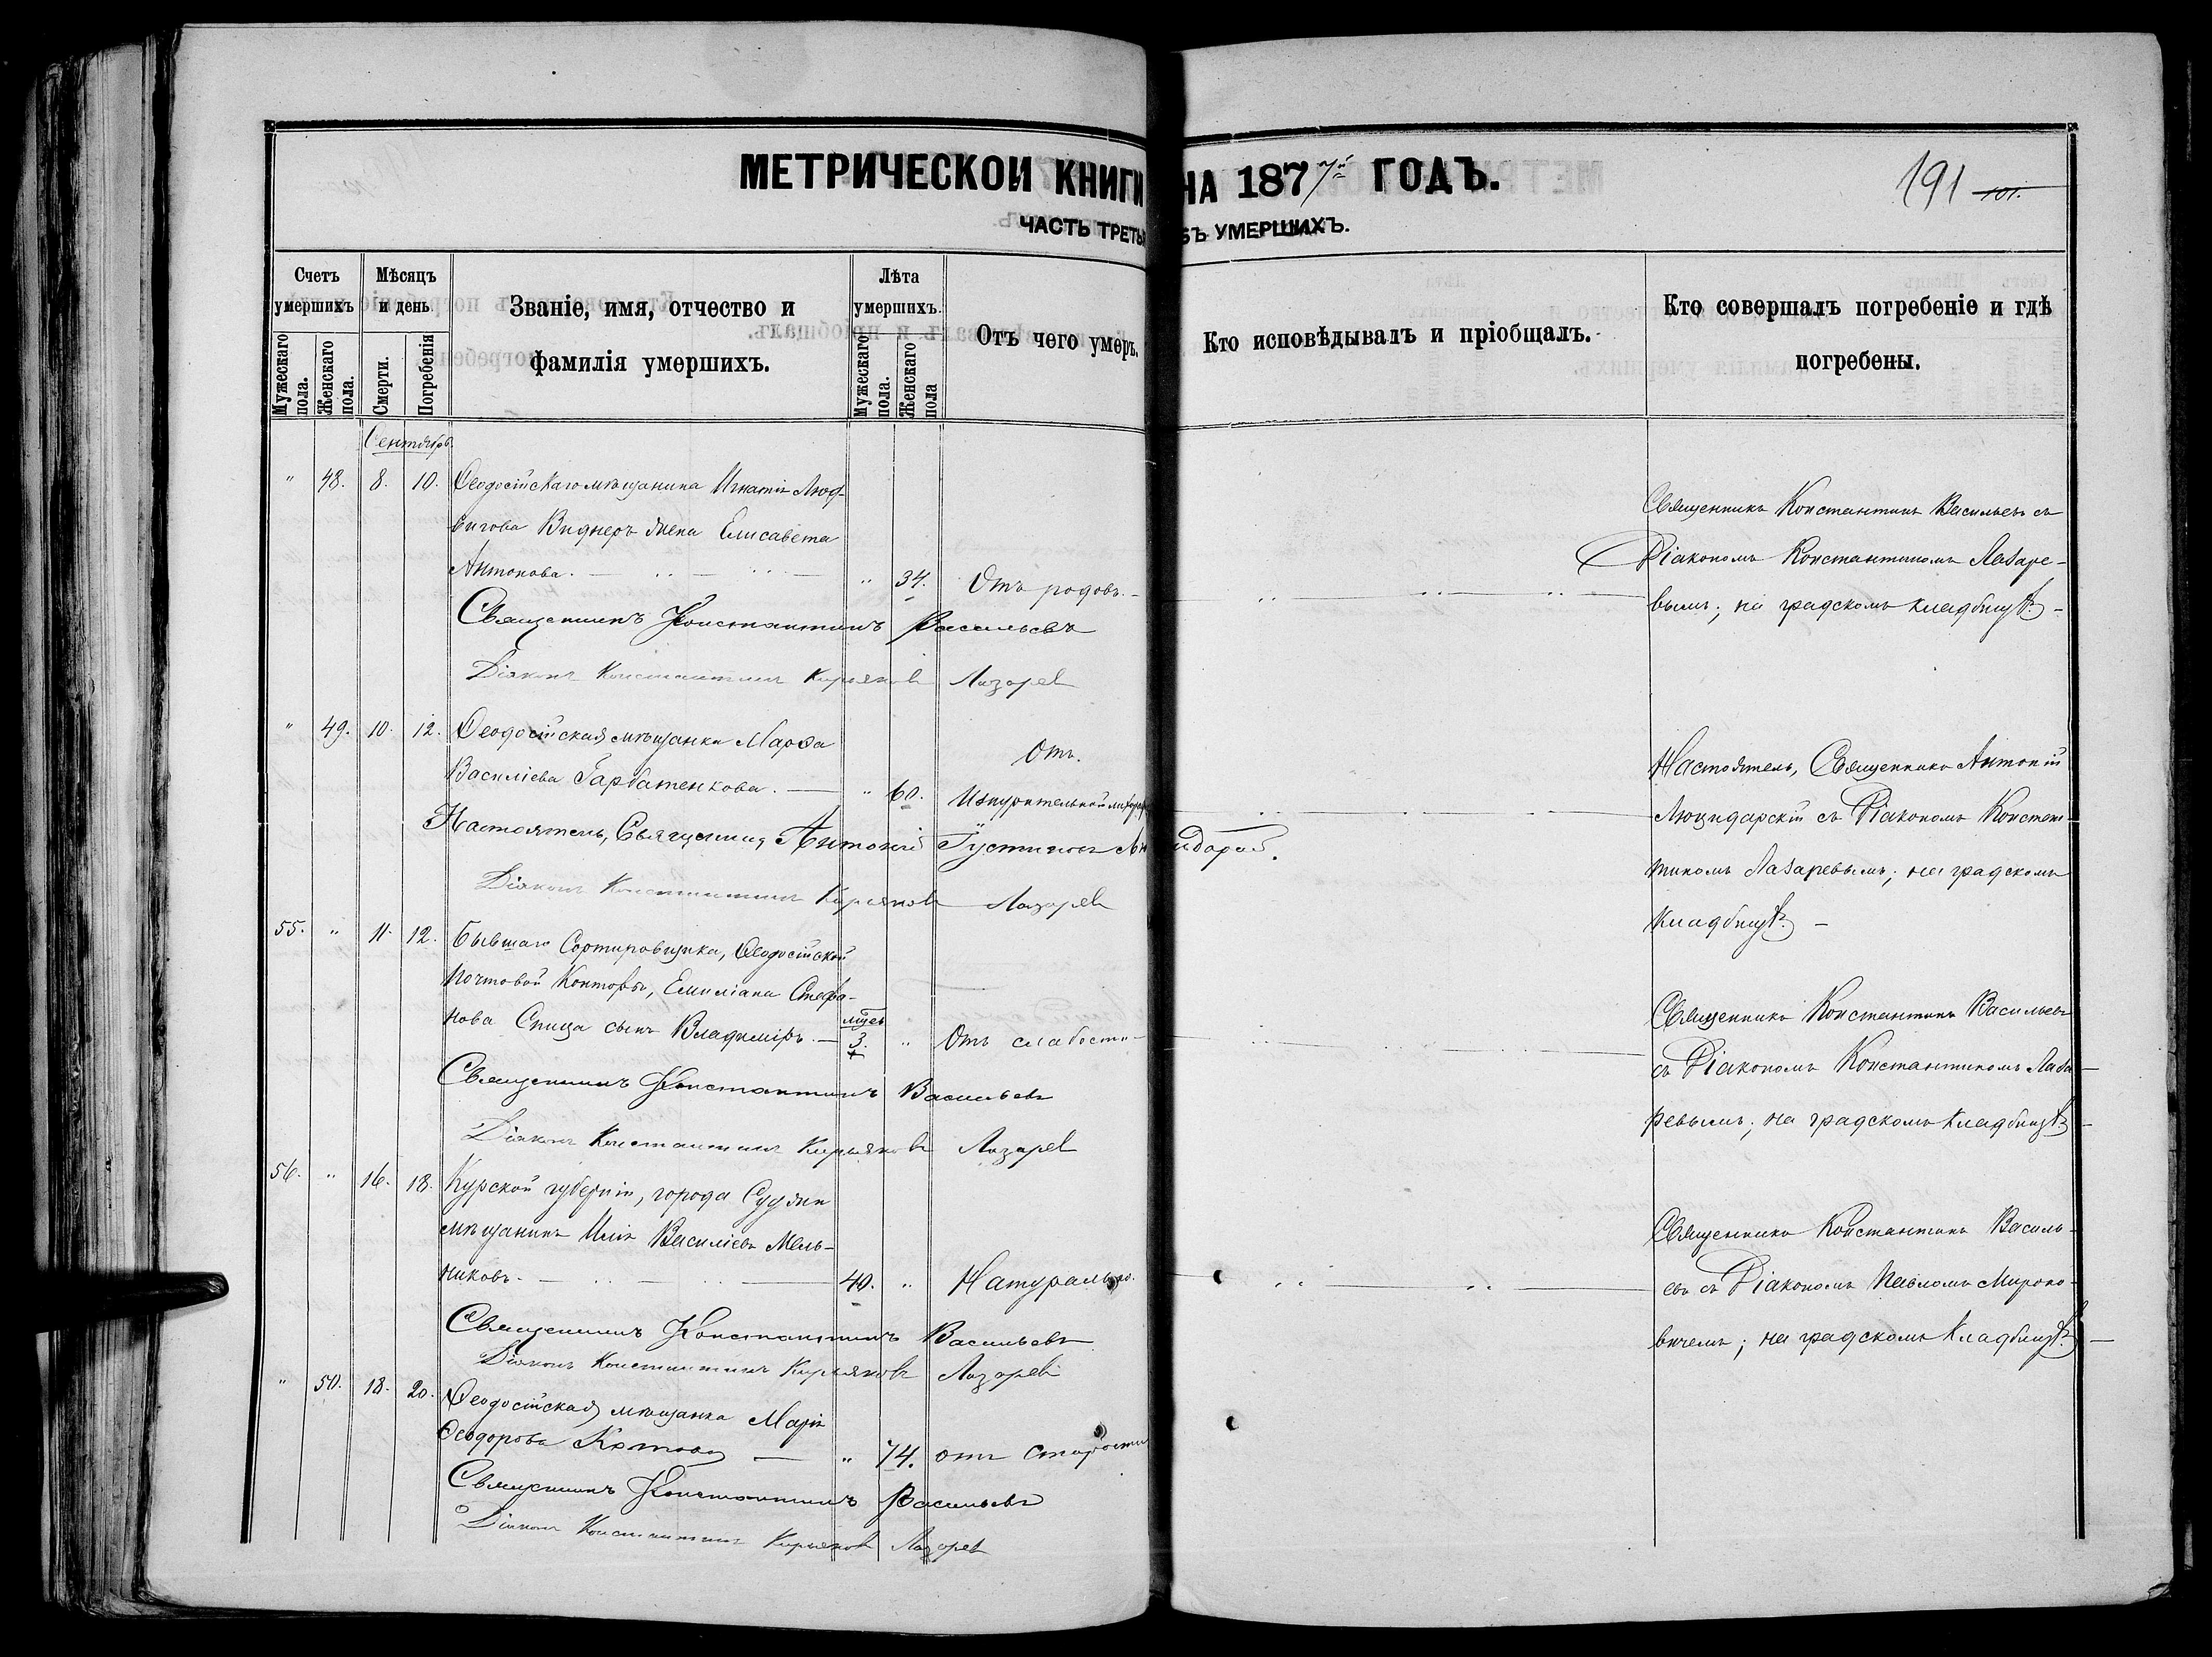 МЕТРИЧЕСКОЙ КНИГИ НА 1877й ГОДЪ.
191 101.
ЧАСТЬ ТРЕТЬЯ ОБЪ УМЕРШИХЪ.
Счетъ умершихъ
Мужескаго пола.
Женскаго пола.
Мѣсяцъ и день
Смерти.
Погребенія
Званіе, имя, отчество и
фамилія умершихъ.
Лѣта умершихъ.
Мужескаго пола.
Женскаго пола
Отъ чего умеръ.
Кто исповѣдывалъ и пріобщалъ.
Кто совершалъ погребеніе и гдѣ
погребены.
Сентябрь
" 48. 8. 10. Ѳеодосійскаго мѣщанина Игнатія Люд-
вигова Виднеръ жена Елисавета
Антонова. " 34. Отъ родовъ.
Священникъ Константинъ Васильевъ съ
Діакономъ Константиномъ Лазаре-
вымъ; на градскомъ кладбищѣ
Священникъ Константинъ Васильевъ
Діаконъ Константинъ Кирьяковъ Лазаревъ
" 49. 10. 12. Ѳеодосійская мѣщанка Марѳа
Василіева Гарбатенкова. " 60. Отъ
Изнурительной
Настоятель, Священникъ Антоній
съ Діакономъ Констан-
тиномъ Лазаревымъ; на градскомъ
кладбищѣ
Настоятель, Священникъ Антоній
Діаконъ Константинъ Кирьяковъ Лазаревъ
55. " 11. 12. Бывшаго Сортировщика, Ѳеодосійской
Почтовой Конторы, Емиліана Стефа-
нова Спица сынъ Владиміръ. мѣсц. 3. " Отъ слабости
Священникъ Константинъ Васильевъ
съ Діакономъ Константиномъ Лаза-
ревымъ; на градскомъ кладбищѣ
Священникъ Константинъ Васильевъ
Діаконъ Константинъ Кирьяковъ Лазаревъ
56. " 16. 18. Курской губерніи, города Суджи
мѣщанинъ Илія Василіевъ Мель-
никовъ. 40. " Натурально.
Священникъ Константинъ Василь-
евъ съ Діакономъ Павломъ Мироно-
вичемъ; на градскомъ кладбищѣ
Священникъ Константинъ Васильевъ
Діаконъ Константинъ Кирьяковъ Лазаревъ
" 50. 18. 20. Ѳеодосійская мѣщанка Марія
Ѳеодорова " 74. отъ старости
Священникъ Константинъ Васильевъ
Діаконъ Константинъ Кирьяковъ Лазаревъ